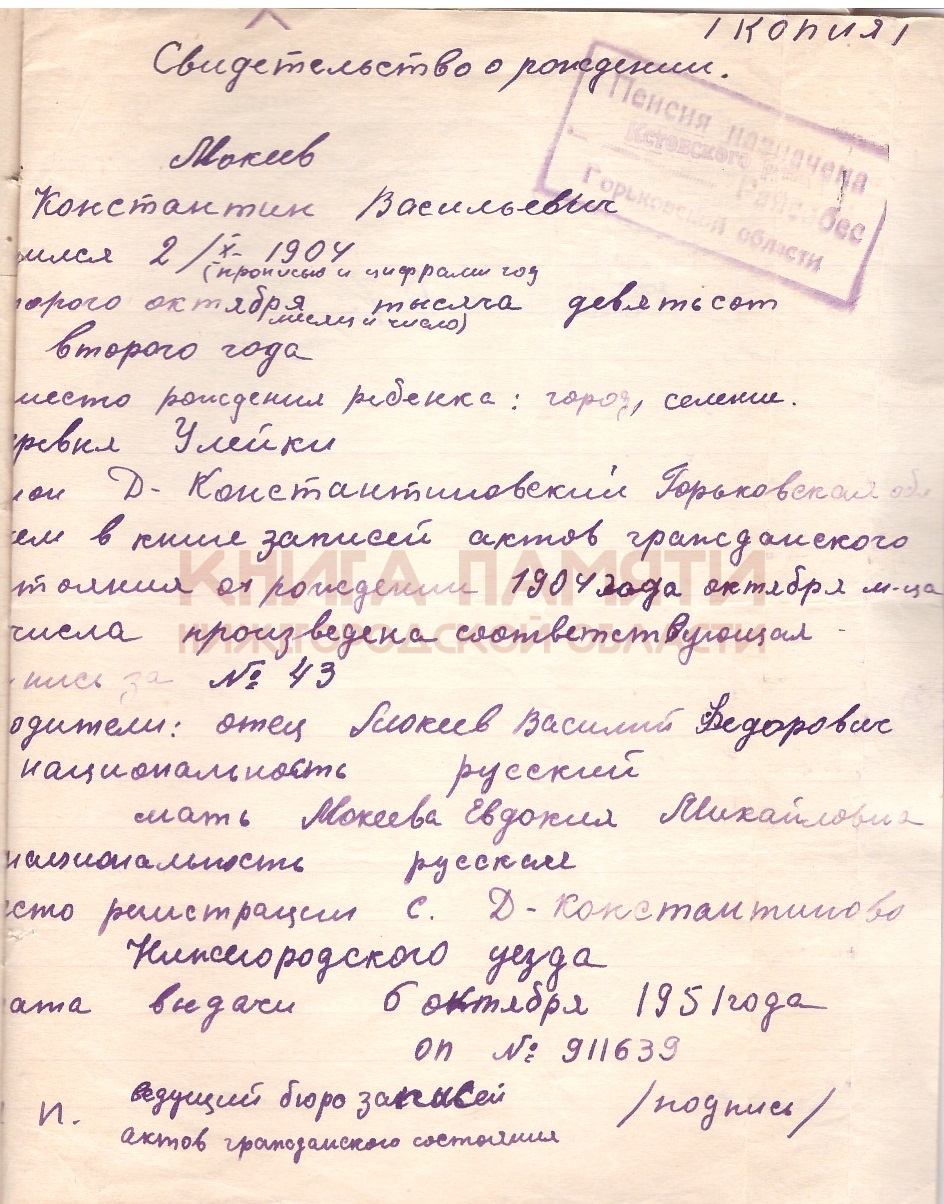 /КОПИЯ/
Свидетельство о рождении.
Пенсия назначена
Кстовского
Райсобес
Горьковской области
Мокеев
Константин Васильевич
ился 2/X- 1904
(прописью и цифрами год
торого октября тысяча девятьсот
месяц и число)
второго года
место рождения ребенка: город, селение.
ревня Улейки
йон Д-Константиновский Горьковская обл
чем в книге записей актов гражданского
стояния о рождении 1904 года октября м-ца
числа произведена соответствующая
пись за № 43
одители: отец Мокеев Василий Федорович
национальность русский
мать Мокеева Евдокия Михайловна
национальность русская
есто регистрации с. Д-Константиново
Нижегородского уезда
ата выдачи 6 октября 1951 года
ОП № 911639
п. ведущий бюро записей /подпись/
актов гражданского состояния
КНИГА ПАМЯТИ
НИЖЕГОРОДСКОЙ ОБЛАСТИ